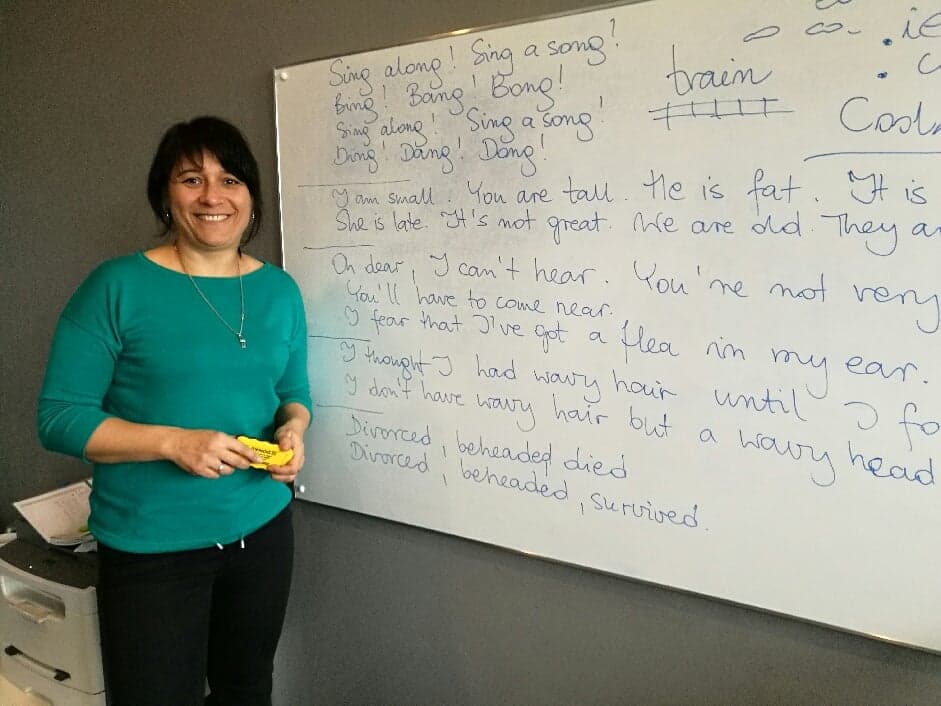 Sing along! Sing a song!
Bing! Bang! Bong!
Sing along! Sing a song!
Ding! Dang! Dong!
I am small. You are tall. He is fat. It is
She is late. It's not great. We are old. They a
Oh dear, I can't hear. You're not very
You'll have to come near.
I fear that I've got a flea in my ear.
I thought I had wavy hair until I fo
I don't have wavy hair but a wavy head
Divorced, beheaded, died
Divorced, beheaded, survived.
train
Cool